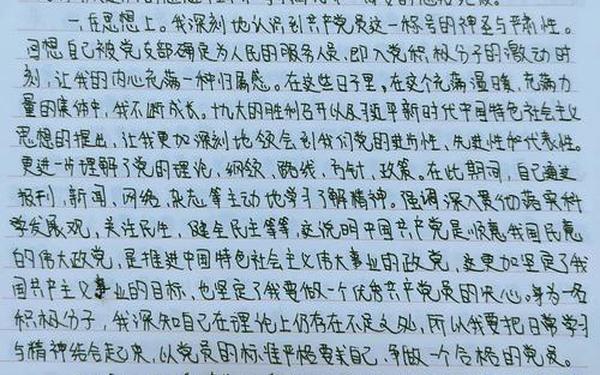 一.在思想上。我深刻地认识到共产党员这一称号的神圣与严肃性。
回想自己被党支部确定为人民的服务人员,即入党积极分子的激动时
刻,让我的内心充满一种归属感。在这些日子里,在这个充满温暖、充满力
量的集体中,我不断成长。十九大的胜利召开以及习近平新时代中国特色社会主义
思想的提出,让我更加深刻地领会到我们党的进步性、先进性和代表性。
更进一步理解了党的理论,纲领、路线、方针、政策。在此期间,自己通过
报刊,新闻、网络、杂志等主动地学习了解精神。强调深入贯彻落实科
学发展观,关注民生,健全民主等等,这说明中国共产党是顺意我国民意
的伟大政党,是推进中国特色社会主义伟大事业的政党,这更加坚定了我
国共产主义事业的目标,也坚定了我要做一个优秀共产党员的决心。身为一名
积极分子,我深知自己在理论上仍存在不足之处,所以我要把日常学习
与精神结合起来,以党员的标准严格要求自己,争做一个合格的党员。